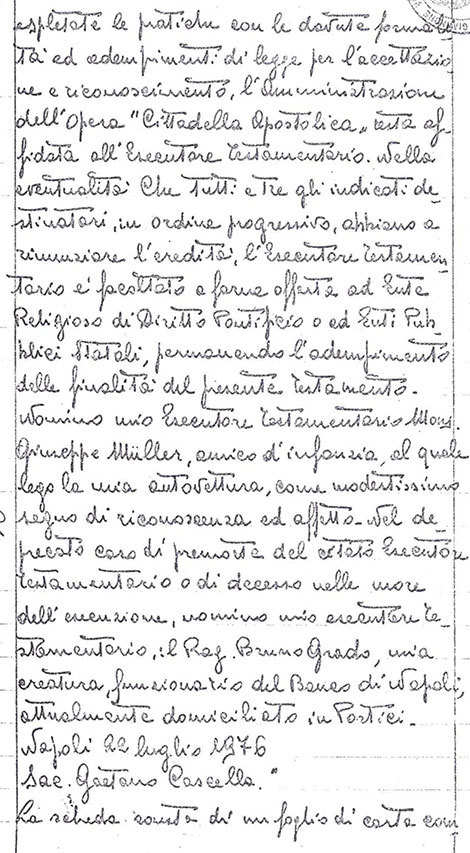 espletate le pratiche con le dovute formali-
tà ed adempimenti di legge per l'accettazio-
ne e riconoscimento, l'Amministrazione
dell'Opera "Cittadella Apostolica" resta af-
fidata all'Esecutore Testamentario. Nella
eventualità che tutti e tre gli indicati de-
stinatari, in ordine progressivo, abbiano a
rinunziare l'eredità, l'Esecutore Testamen-
tario e' facoltato a farne offerta ad Ente
Religioso di Diritto Pontificio o ad Enti Pub-
blici Statali, permanendo l'adempimento
delle finalità del presente Testamento.
Nomino mio Esecutore Testamentario Mons.
Giuseppe Müller, amico d'infanzia, al quale
lego la mia autovettura, come modestissimo
segno di riconoscenza ed affetto. Nel de-
precato caso di premorte del citato Esecutore
Testamentario o di decesso nelle more
dell'esecuzione, nomino mio esecutore te-
stamentario, il Rag. Bruno Grado, mia
creatura, funzionario del Banco di Napoli,
attualmente domiciliato in Portici.
Napoli 22 luglio 1976
Sac. Gaetano Cascella."
La scheda consta di un foglio di carta com